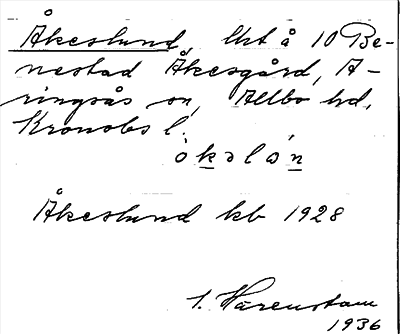 Åkeslund, lht å 10 Be-
nestad Åkesgård, A-
ringsås sn, Allbo hd,
Kronobs l.
ò k ə l ə ń
Åkeslund kb 1928
S. Härenstam
1936